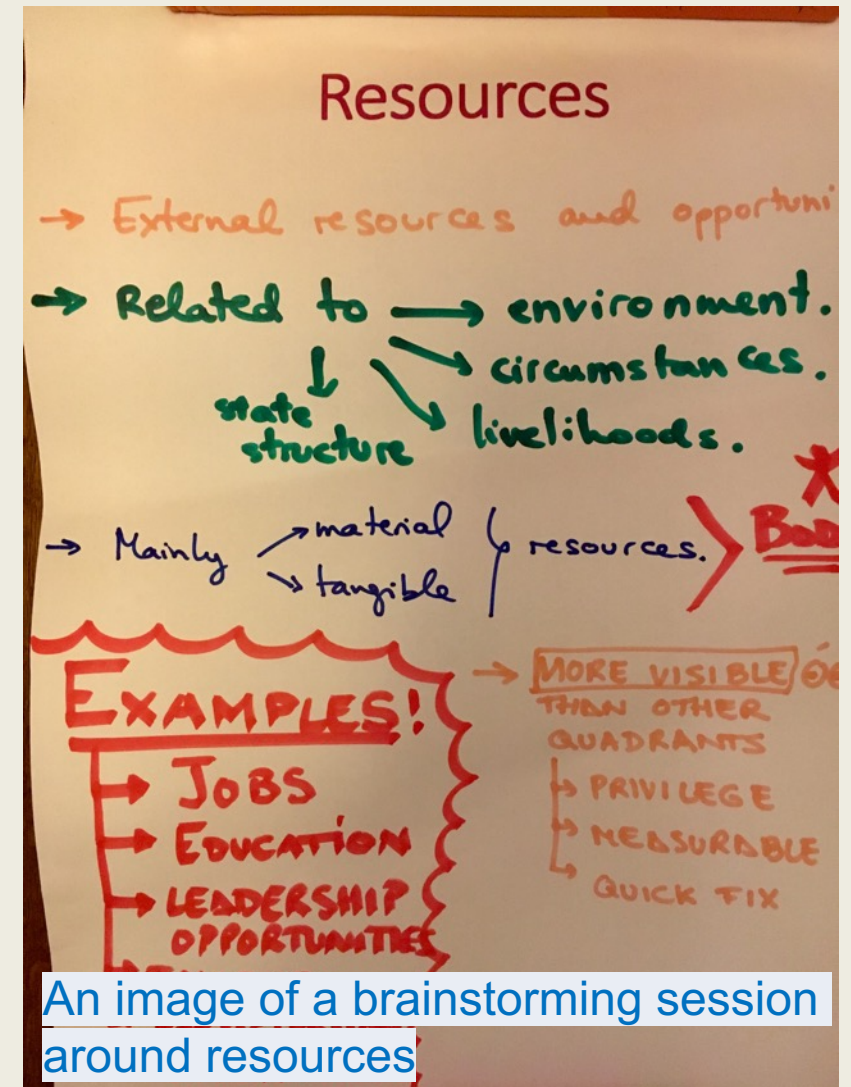 Resources
→ External resources and opportuni
→ Related to → environment.
→ circumstances.
→ livelihoods.
↓ state
structure
→ Mainly → material
→ tangible
resources.
BOD
EXAMPLES!
→ JOBS
→ EDUCATION
→ LEADERSHIP
OPPORTUNITIES
→ MORE VISIBLE
THAN OTHER
QUADRANTS
→ PRIVILEGE
→ MEASURABLE
→ QUICK FIX
An image of a brainstorming session
around resources